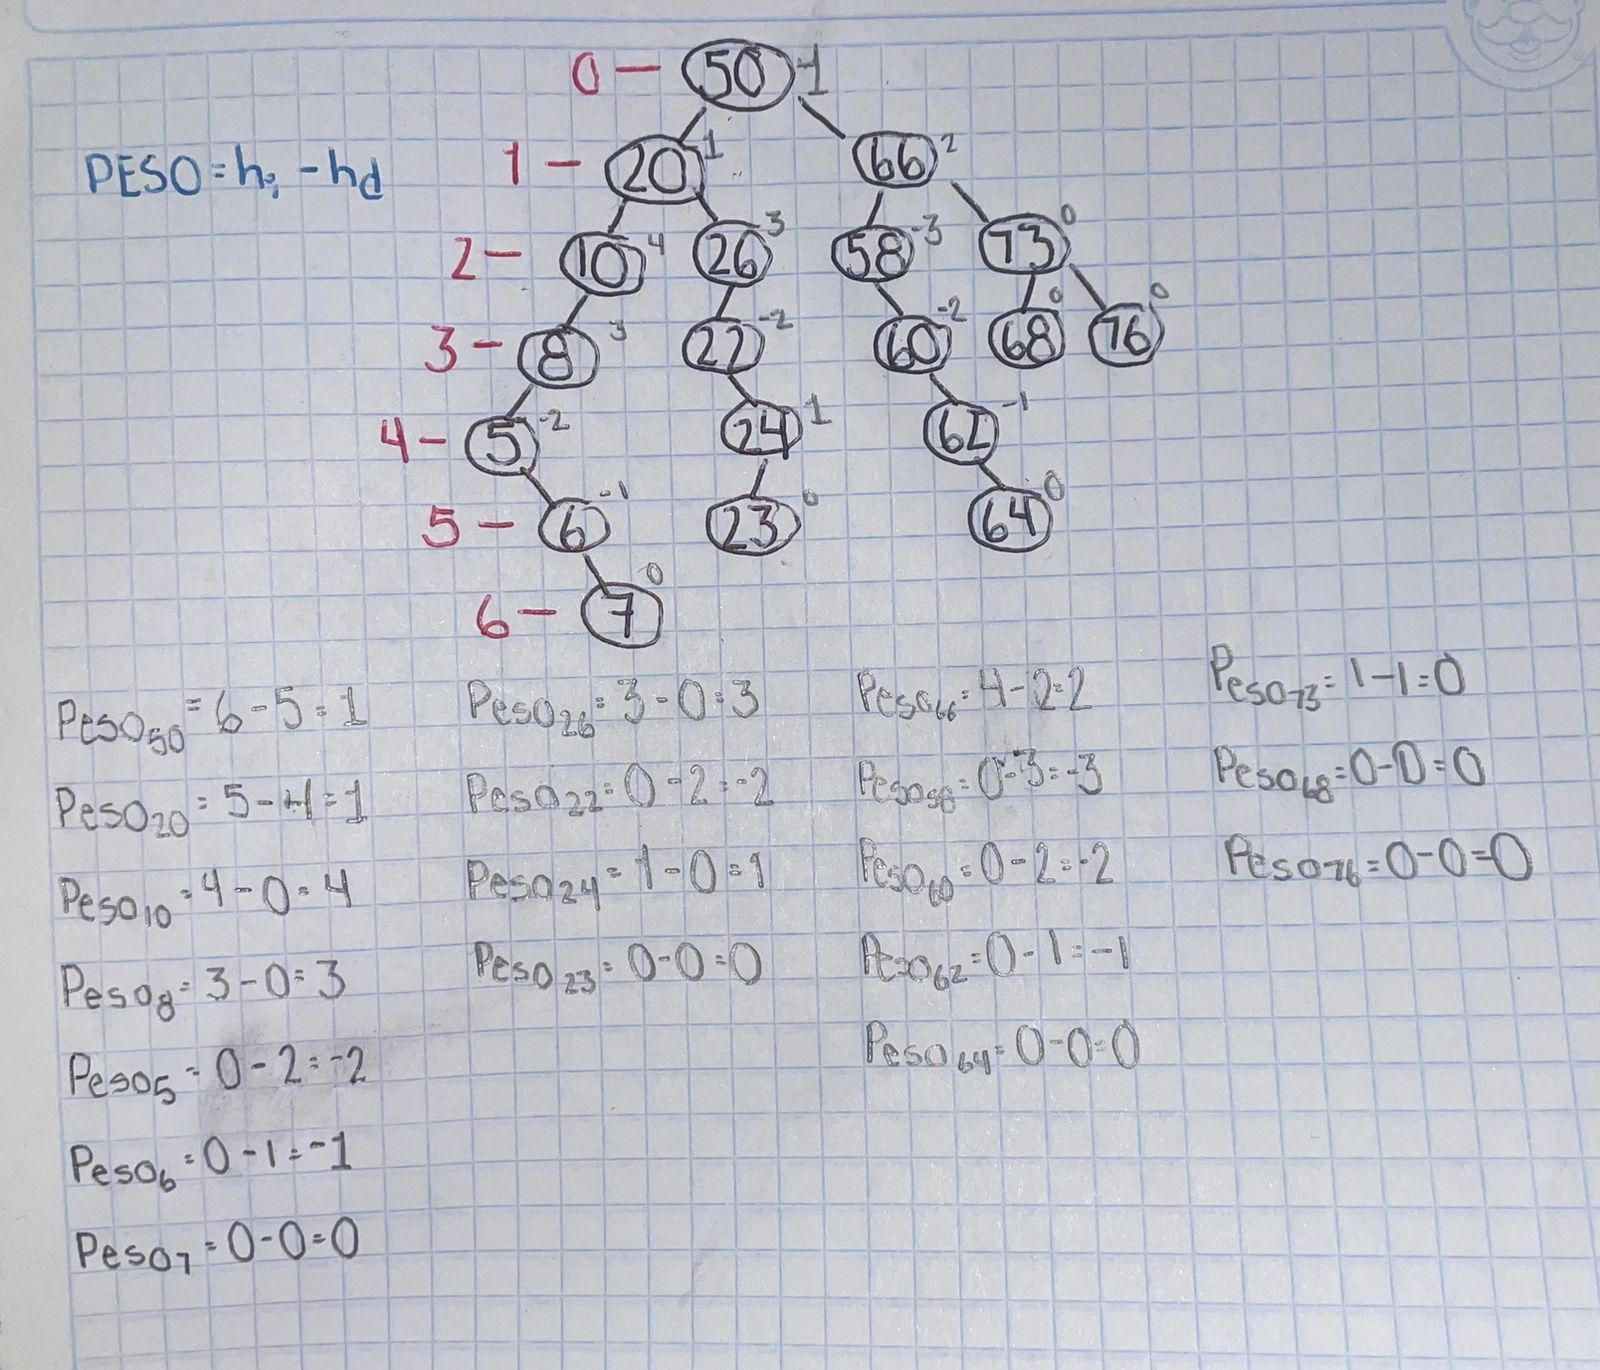 0 — 50 1
PESO = hi - hd
1 — 20 1 66 2
2 — 10 4 26 3 58 -3 73 0
3 — 8 3 22 -2 60 -2 68 0 76 0
4 — 5 -2 24 1 62 -1
5 — 6 -1 23 0 64 0
6 — 7 0
Peso50 = 6 - 5 = 1
Peso20 = 5 - 4 = 1
Peso10 = 4 - 0 = 4
Peso8 = 3 - 0 = 3
Peso5 = 0 - 2 = -2
Peso6 = 0 - 1 = -1
Peso7 = 0 - 0 = 0
Peso26 = 3 - 0 = 3
Peso22 = 0 - 2 = -2
Peso24 = 1 - 0 = 1
Peso23 = 0 - 0 = 0
Peso66 = 4 - 2 = 2
Peso58 = 0 - 3 = -3
Peso60 = 0 - 2 = -2
Peso62 = 0 - 1 = -1
Peso64 = 0 - 0 = 0
Peso73 = 1 - 1 = 0
Peso68 = 0 - 0 = 0
Peso76 = 0 - 0 = 0